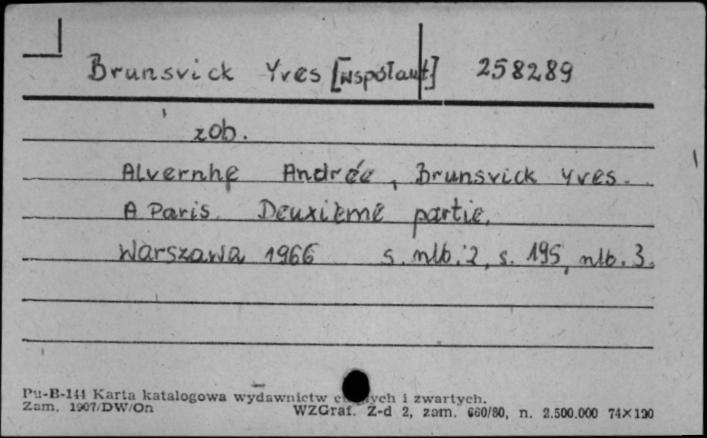 Brunsvick Yves [współaut] 258289
zob.
Alvernhe Andrée, Brunsvick Yves.
A Paris. Deuxième partie.
Warszawa 1966 s. nlb. 2, s. 195, nlb. 3.
Pu-B-144 Karta katalogowa wydawnictw i zwartych.
Zam. 1907/DW/On WZGraf. Z-d 2, zam. 660/80, n. 2.500.000 74×120